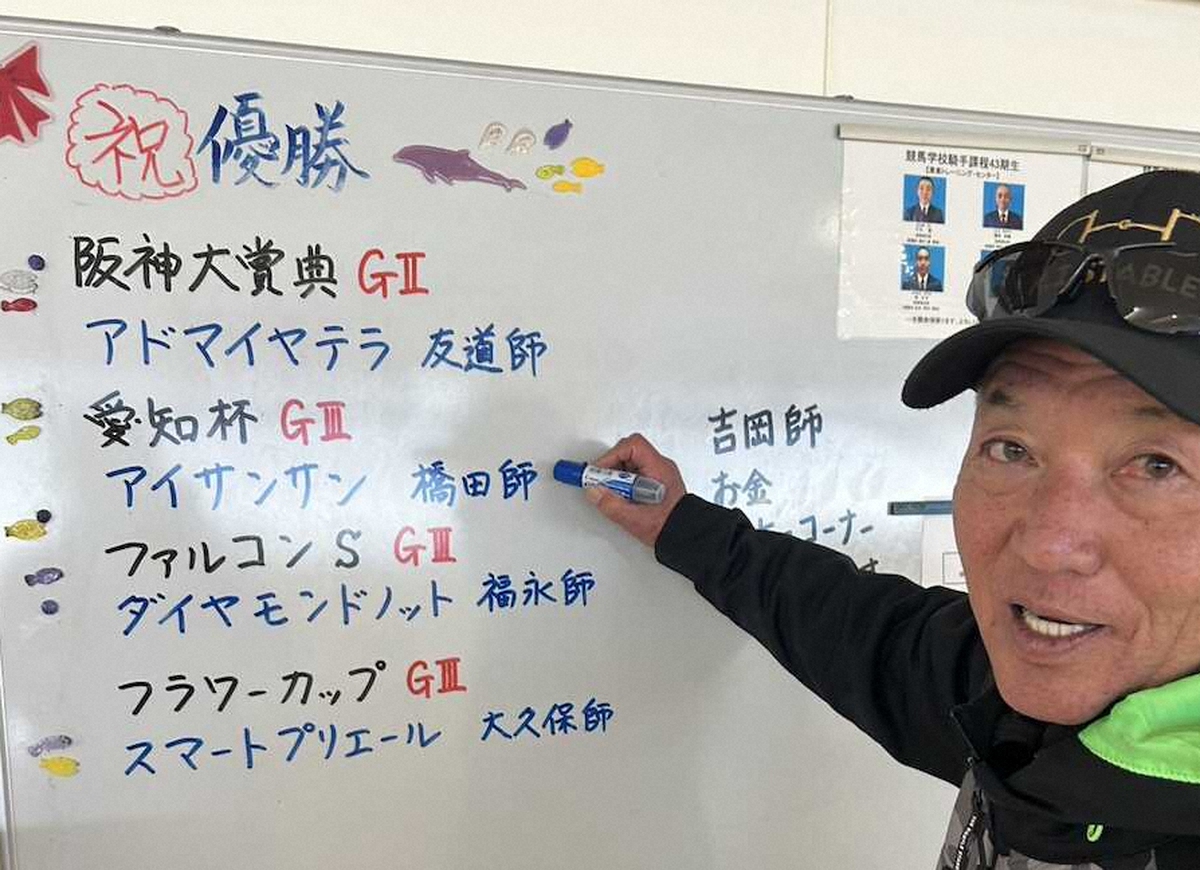 祝 優勝
阪神大賞典 GⅡ
アドマイヤテラ 友道師
愛知杯 GⅢ
アイサンサン 橋田師
ファルコンS GⅢ
ダイヤモンドノット 福永師
フラワーカップ GⅢ
スマートプリエール 大久保師
吉岡師
お金
コーナー
す
競馬学校騎手課程43期生
ABLE